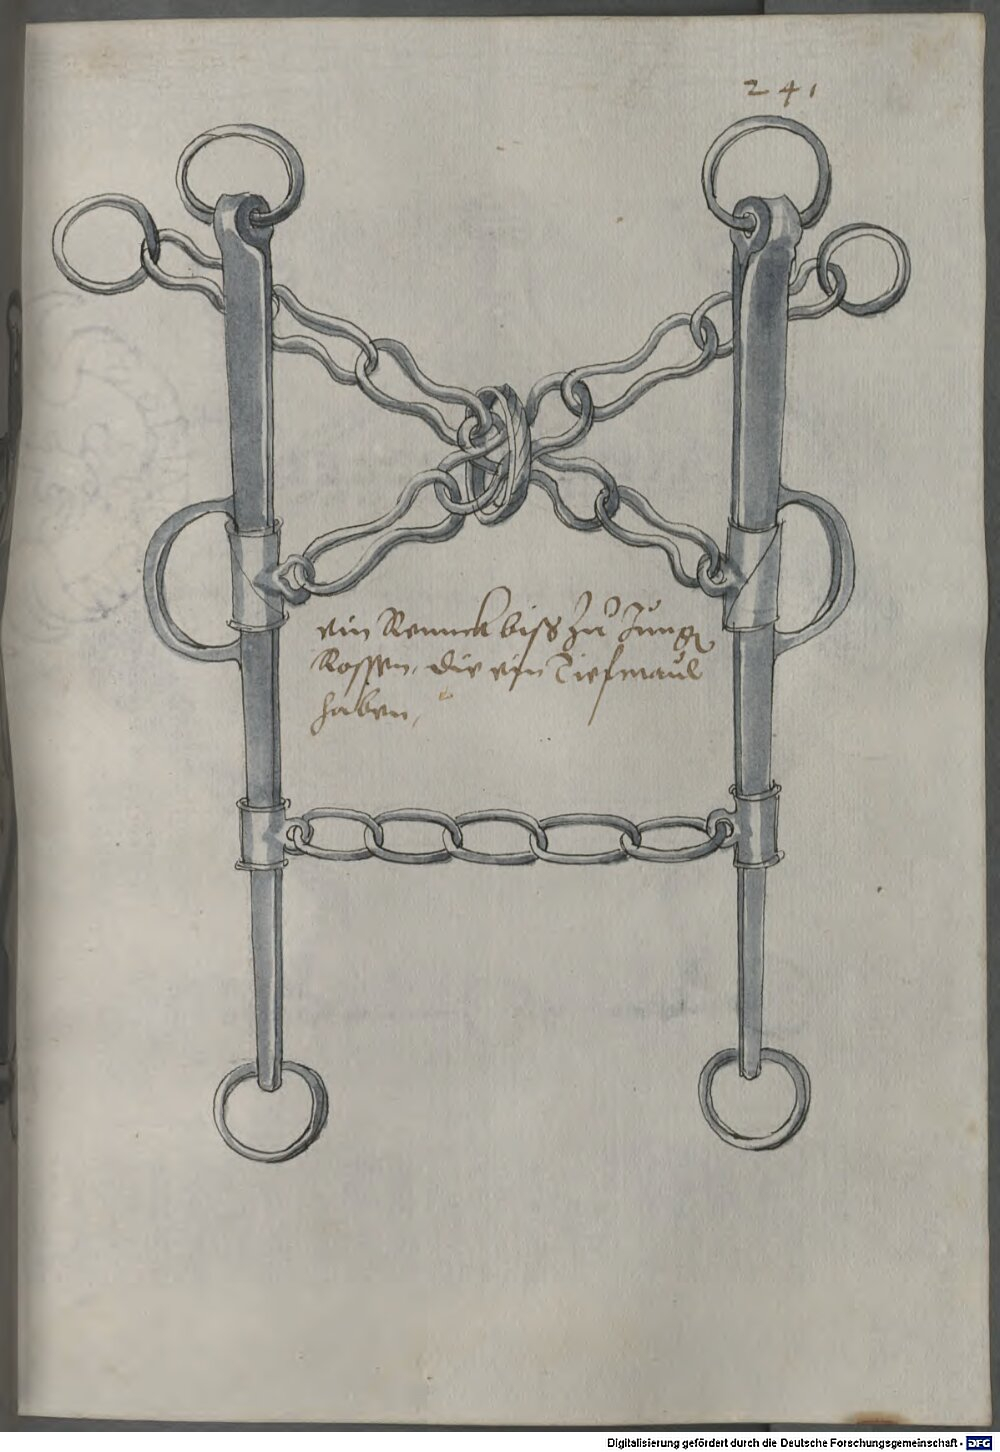 241
ein Rennck biss zu Jung
Rossen, die ein Tiefmaul
haben,
Digitalisierung gefördert durch die Deutsche Forschungsgemeinschaft - DFG